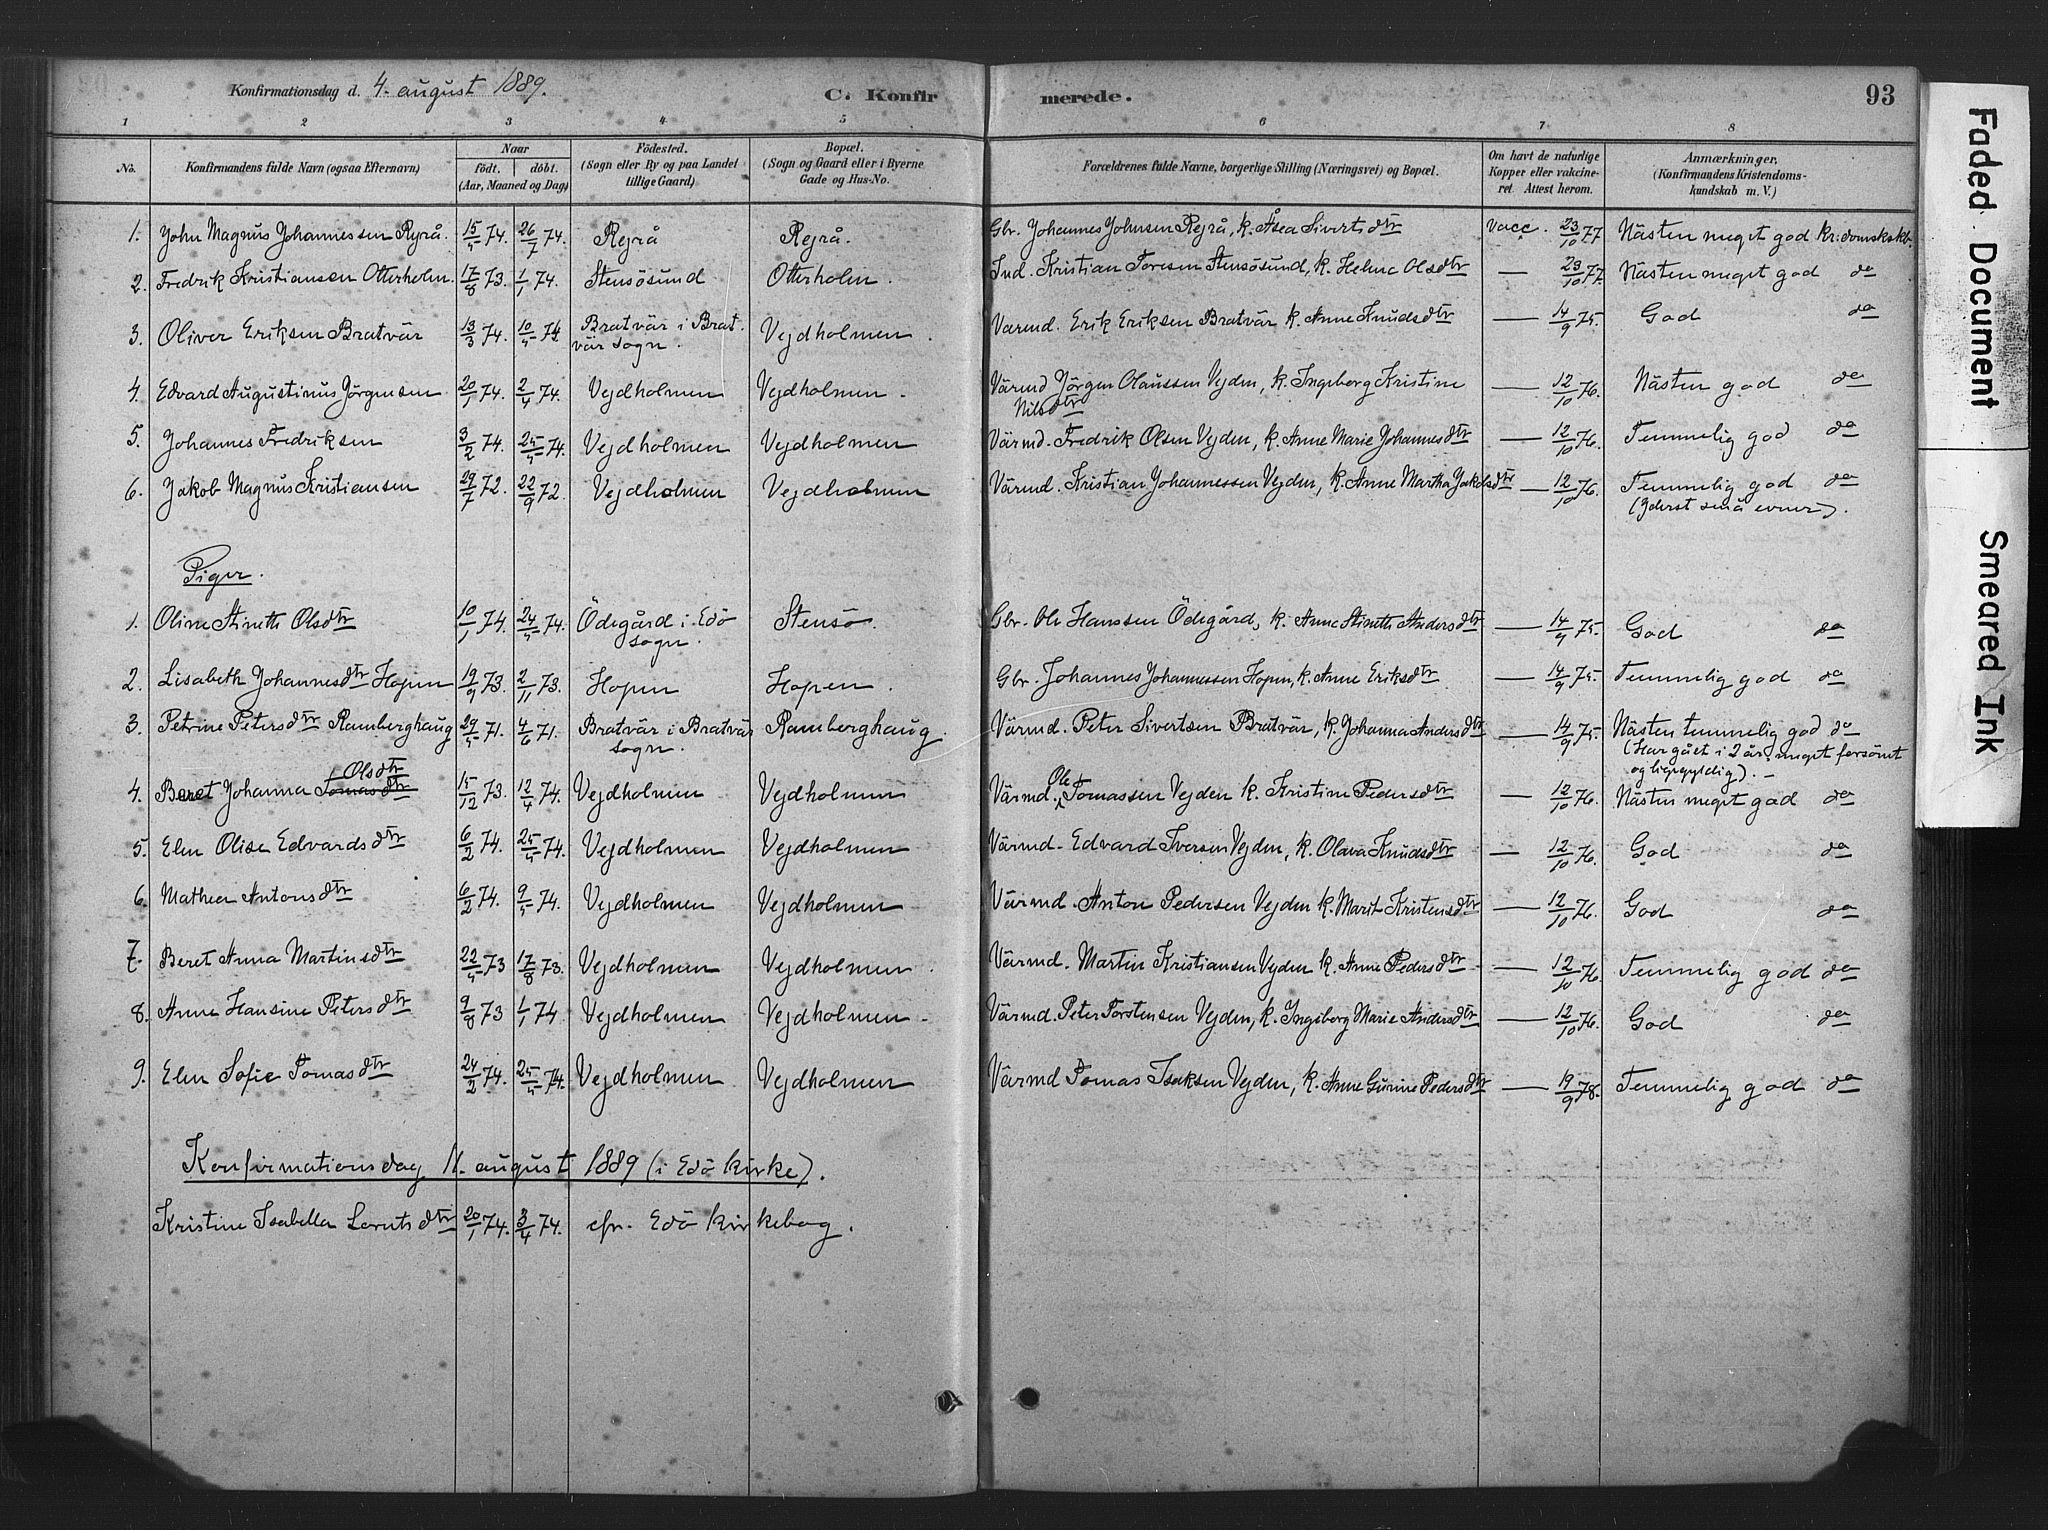 Konfirmationsdag d. 4. august 1889. C. Konfir merede. 93
1 2 3 4 5 6 7 8
No. Konfirmandens fulde Navn (ogsaa Efternavn) Naar født. døbt. (Aar, Maaned og Dag) Fødested. (Sogn eller By og paa Landet tillige Gaard) Bopæl. (Sogn og Gaard eller i Byerne Gade og Hus-No. Forældrenes fulde Navne, borgerlige Stilling (Næringsvei) og Bopæl. Om havt de naturlige Kopper eller vakcineret. Attest herom. Anmærkninger, (Konfirmandens Kristendomskundskab m. V.)
1. John Magnus Johannessen Rejrå. 15/5 74. 26/7 74. Rejrå Rejrå. Gbr. Johannes Johnsen Rejrå, k. Åsea Sivertsdtr vacc. 23/10 77 Nästen meget god kr.domskskb.
2. Fredrik Kristiansen Otterholm. 17/8 73. 1/1 74. Stensösund Otterholm. Ind. Kristian Toresen Stensösund, k. Helene Olsdtr — 23/10 77. Nästen meget god do
3. Oliver Eriksen Bratvär 13/3 74. 10/5 74. Bratvär i Bratvär sogn. Vejdholmen. Värmd. Erik Eriksen Bratvär k. Anne Knudsdtr — 14/9 75. God do
4. Edvard Augustinus Jörgensen 20/1 74. 2/4 74. Vejdholmen Vejdholmen. Värmd Jörgen Olaussen Vejden, k. Ingeborg Kristine Nilsdtr — 12/10 76. Nästen god do
5. Johannes Fredriksen 3/2 74. 25/5 74. Vejdholmen Vejdholmen Värmd. Fredrik Olsen Vejden, k. Anne Marie Johannesdtr — 12/10 76. Temmelig god do
6. Jakob Magnus Kristiansen 29/7 72. 22/9 72. Vejdholmen Vejdholmen Värmd. Kristian Johannessen Vejden, k. Anne Martha Jakobsdtr — 12/10 76. Temmelig god do
(Yderst små evner).
Piger.
1. Oline Stineth Olsdtr 10/1 74. 24/5 74. Ödegård i Edö sogn. Stensö. Gbr. Ole Hanssen Ödegård, k. Anne Stineth Andersdtr — 14/9 75. God do
2. Lisabeth Johannesdtr Hopen 19/9 73. 2/11 73. Hopen Hopen. Gbr. Johannes Johannessen Hopen, k. Anne Eriksdtr — 14/9 75. Temmelig god do
3. Petrine Petersdtr Ramberghaug 29/5 71. 4/6 71. Bratvär i Bratvär sogn. Ramberghaug Värmd. Peter Sivertsen Bratvär, k. Johanna Andersdtr — 14/9 75. Nästen temmelig god do
(Har gået i 2 år. meget forsömt og ligegyldig). -
4. Beret Johanna Tomasdtr Olsdtr 15/12 73. 12/4 74. Vejdholmen Vejdholmen Värmd. Ole Tomassen Vejden k. Kristine Pedersdtr — 12/10 76. Nästen meget god do
5. Elen Olise Edvardsdtr 6/2 74. 25/5 74. Vejdholmen Vejdholmen Värmd. Edvard Iversen Vejden, k. Olava Knudsdtr — 12/10 76. God do
6. Mathea Antonsdtr 6/2 74. 9/5 74. Vejdholmen Vejdholmen Värmd. Anton Pedersen Vejden k. Marit Kristensdtr — 12/10 76. God do
7. Beret Anna Martinsdtr 22/5 73 17/8 73. Vejdholmen Vejdholmen. Värmd. Martin Kristiansen Vejden k. Anne Pedersdtr — 12/10 76. Temmelig god do
8. Anne Hansine Petersdtr 9/8 73 1/1 74. Vejdholmen Vejdholmen. Värmd. Peter Torstensen Vejden, k. Ingeborg Marie Andersdtr — 12/10 76. God do
9. Elen Sofie Tomasdtr 24/2 74. 25/5 74. Vejdholmen Vejdholmen Värmd Tomas Isaksen Vejden, k. Anne Gurine Pedersdtr — 19/9 78. Temmelig god do
Konfirmationsdag 11. august 1889 (i Edö kirke).
Kristine Isabella Lorntsdtr 20/1 74. 3/4 74. cfr. Edö kirkebog.
Faded Document
Smeared Ink